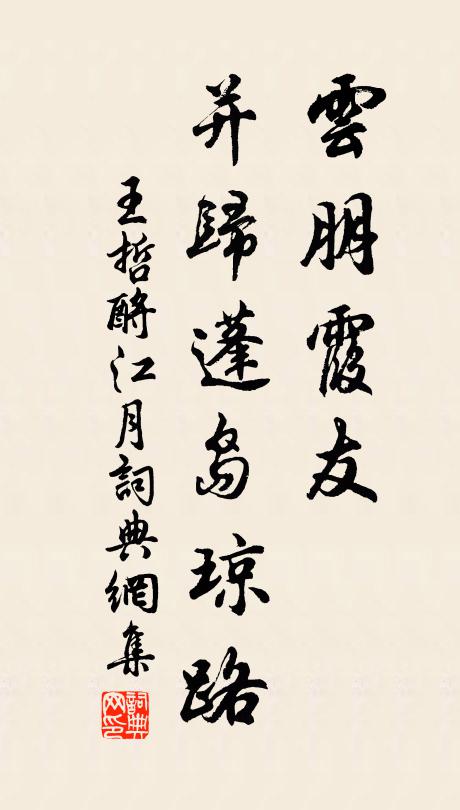 雲朋霞友
并歸蓬島琼路
王哲酹江月詞典網集
詞典网印